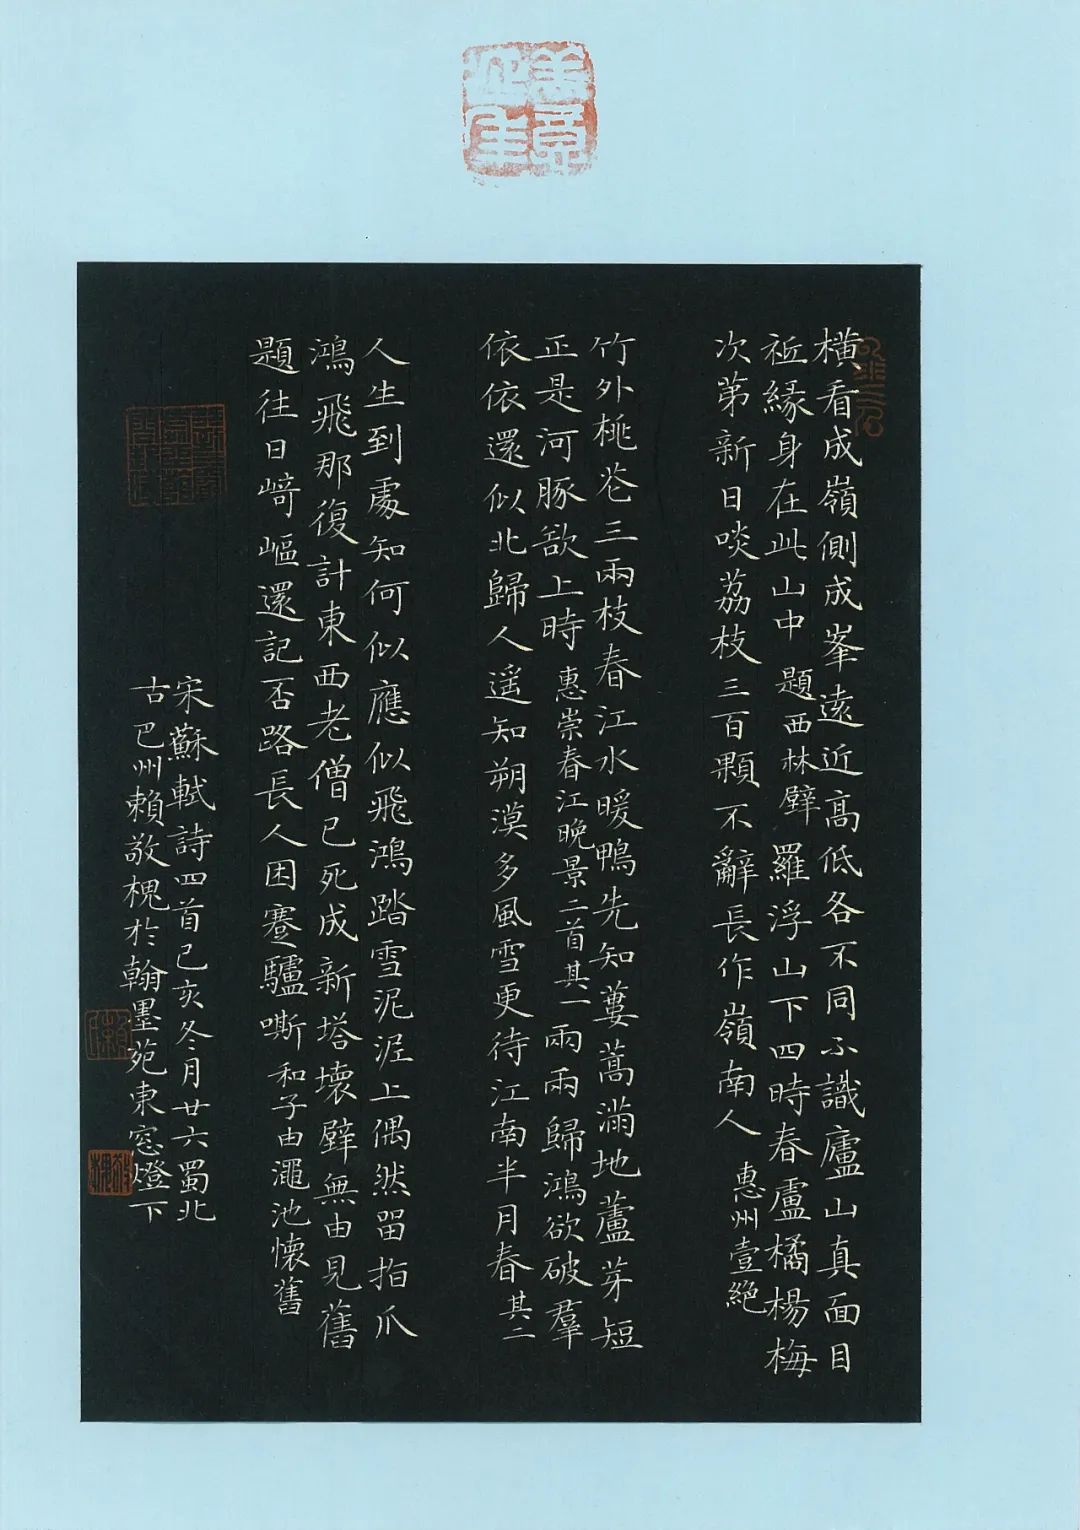 橫看成嶺側成峯遠近高低各不同不識廬山真面目
祗緣身在此山中 題西林壁 羅浮山下四時春盧橘楊梅
次第新日啖荔枝三百顆不辭長作嶺南人 惠州壹絕
竹外桃花三兩枝春江水暖鴨先知蔞蒿滿地蘆芽短
正是河豚欲上時 惠崇春江晚景二首其一 兩兩歸鴻欲破羣
依依還似北歸人遥知朔漠多風雪更待江南半月春 其二
人生到處知何似應似飛鴻踏雪泥泥上偶然留指爪
鴻飛那復計東西老僧已死成新塔壞壁無由見舊
題往日崎嶇還記否路長人困蹇驢嘶 和子由澠池懷舊
宋蘇軾詩四首己亥冬月廿六蜀北
古巴州賴敬槐於翰墨苑東窓燈下
賴
敬槐